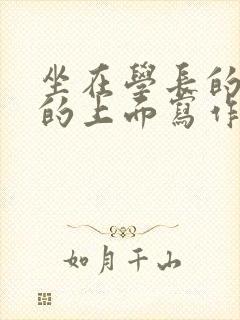 坐在學長的
的上而寫作
如月千山